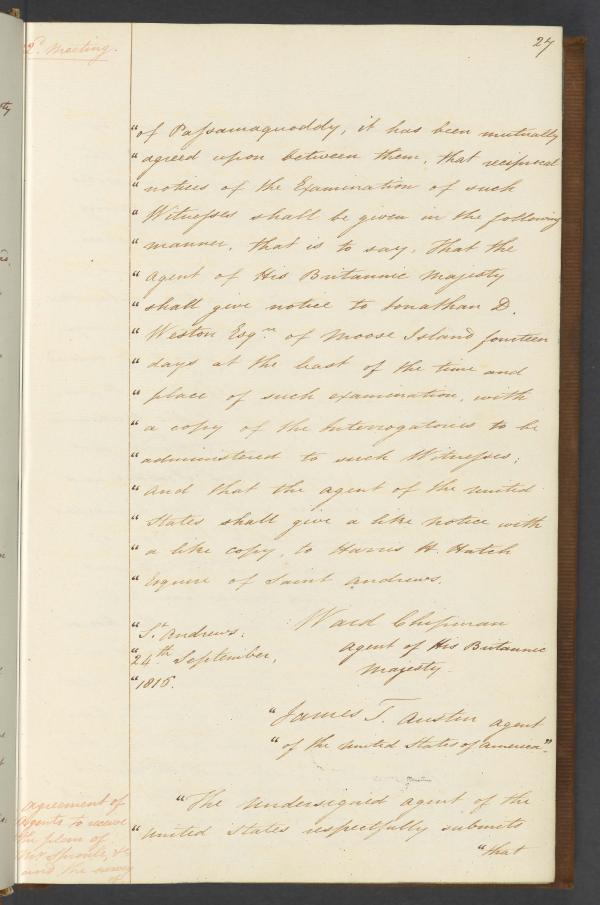 2d. Meeting.
27
"of Passamaquoddy, it has been mutually
"agreed upon between them, that reciprocal
"notices of the Examination of such
"Witnesses shall be given in the following
"manner, that is to say, That the
"Agent of His Britannic Majesty
"shall give notice to Jonathan D.
"Weston Esqre of Moose Island fourteen
"days at the least of the time and
"place of such examination, with
"a copy of the Interrogatories to be
"administered to such Witnesses;
"and that the agent of the United
"States shall give a like notice with
"a like copy, to Harris H. Hatch
"Esquire of Saint Andrews.
"St Andrews.
"24th September,
"1816.
Ward Chipman
Agent of His Britannic
Majesty.
"James T. Austin agent
"of the United States of America."
"The Undersigned agent of the
"United States respectfully submits
"that
Agreement of
Agents to receive
the plan of
Mr Sproule, &c
and the survey
of